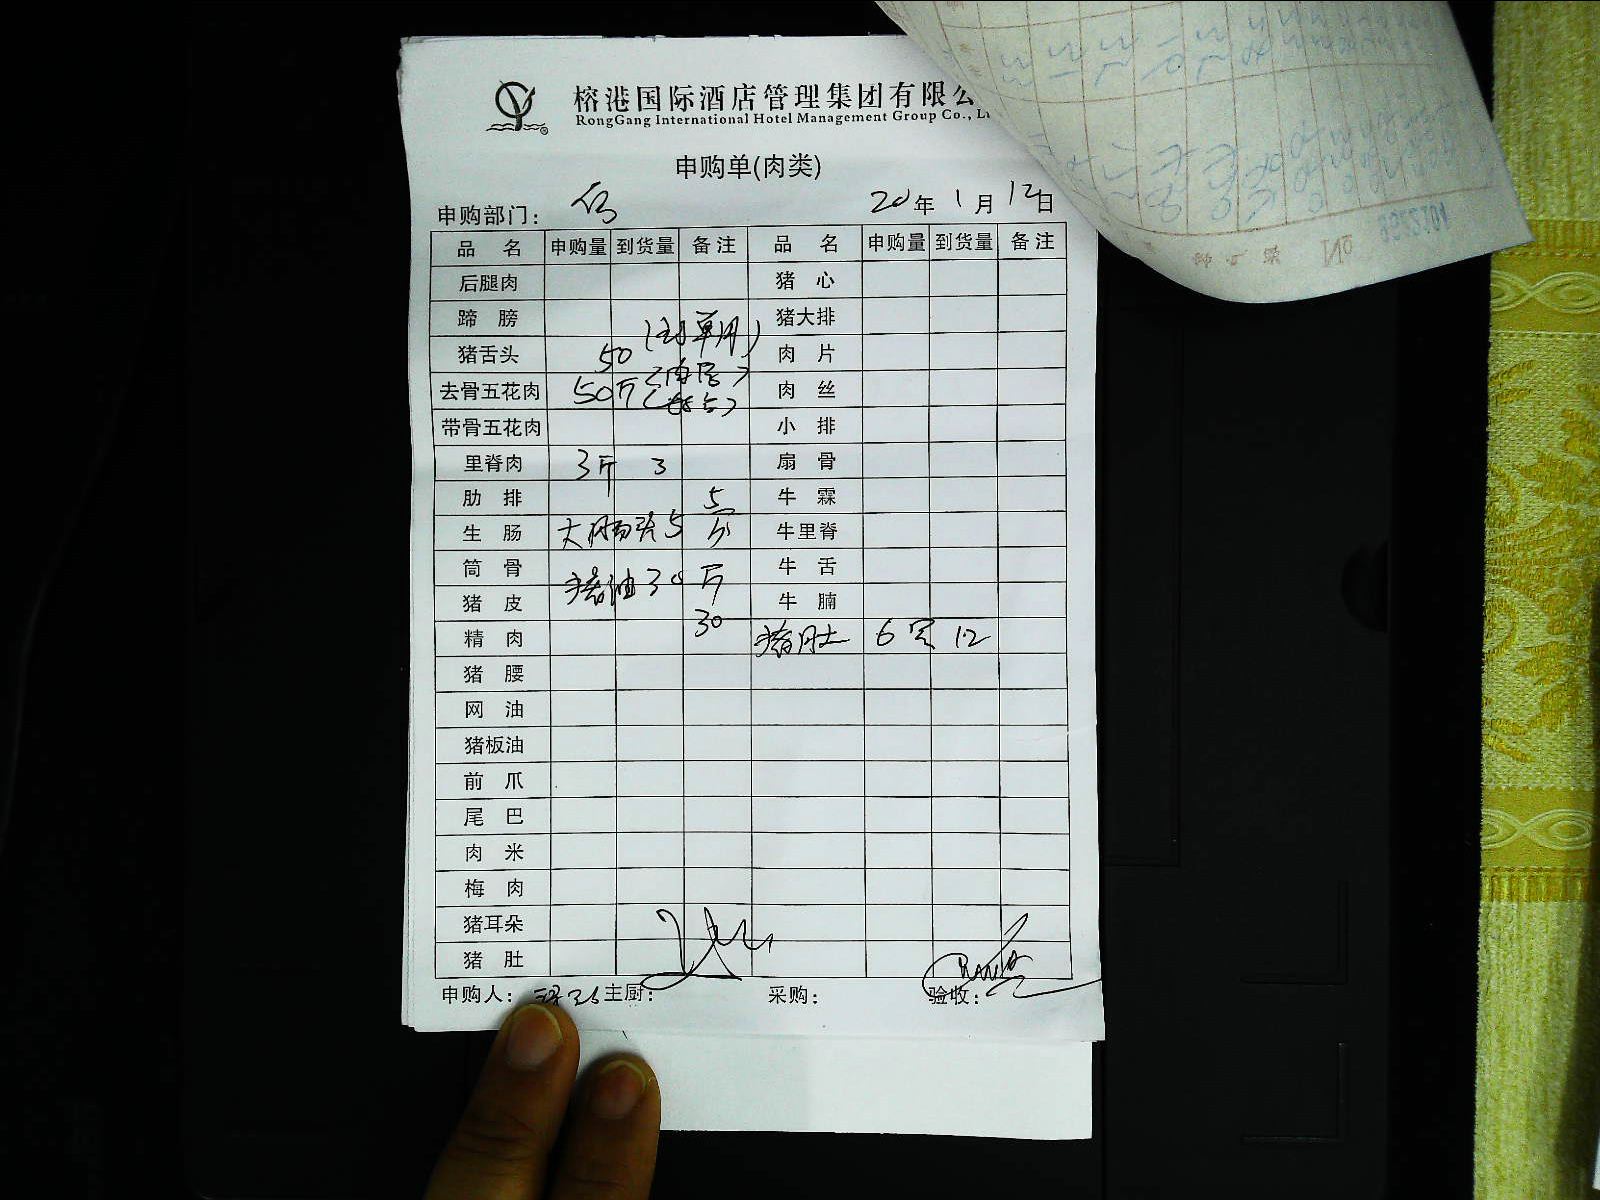 榕港国际酒店管理集团有限公
RongGang International Hotel Management Group Co.,
申购单(肉类)
申购部门： 20年1月12日
品 名 申购量 到货量 备注 品 名 申购量 到货量 备注
后腿肉 猪 心
蹄 膀 猪大排
猪舌头 50 肉 片
去骨五花肉 50斤 肉 丝
带骨五花肉 小 排
里脊肉 3斤 3 扇 骨
肋 排 5 牛 霖
生 肠 大肠头5 牛里脊
筒 骨 猪油30斤 牛 舌
猪 皮 30 牛 腩
精 肉 猪肚 6 12
猪 腰
网 油
猪板油
前 爪
尾 巴
肉 米
梅 肉
猪耳朵
猪 肚
申购人： 主厨： 采购： 验收：